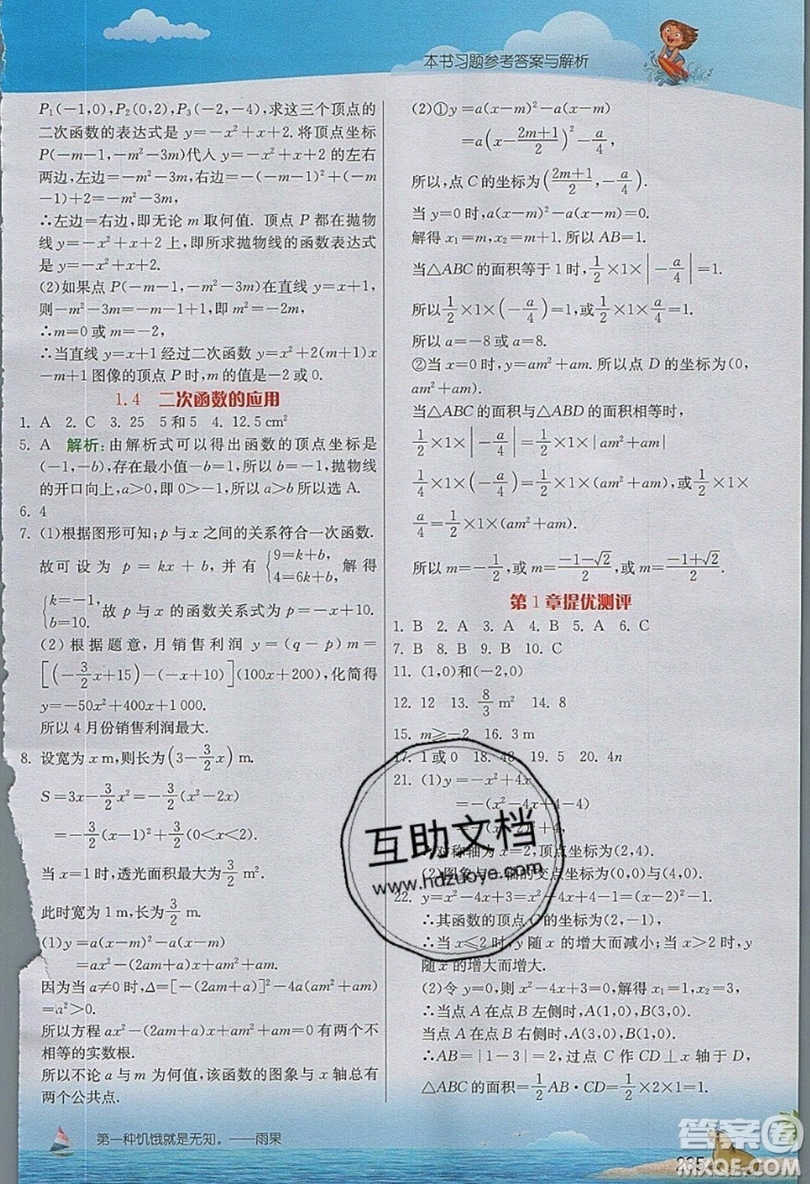 本书习题参考答案与解析
P₁(-1,0),P₂(0,2),P₃(-2,-4),求这三个顶点的
二次函数的表达式是 y=-x²+x+2. 将顶点坐标
P(-m-1,-m²-3m)代入 y=-x²+x+2 的左右
两边,左边=-m²-3m,右边=-(-m-1)²+(-m
-1)+2=-m²-3m,
∴左边=右边,即无论 m 取何值. 顶点 P 都在抛物
线 y=-x²+x+2 上,即所求抛物线的函数表达式
是 y=-x²+x+2.
(2)如果点 P(-m-1,-m²-3m)在直线 y=x+1,
则-m²-3m=-m-1+1,即 m²=-2m,
∴m=0 或 m=-2,
∴当直线 y=x+1 经过二次函数 y=-x²-(2m+1)x
-m+1 图像的顶点 P 时,m 的值是-2 或 0.
1.4 二次函数的应用
1. A 2. C 3. 25 5和5 4. 12.5 cm²
5. A 解析:由解析式可以得出函数的顶点坐标是
(-1,-b),存在最小值-b=1,所以 b=-1,抛物线
的开口向上,a>0,即 0>-1,所以 a>b 所以选 A.
6. 4
7. (1)根据图形可知:p 与 x 之间的关系符合一次函数.
故可设为 p=kx+b,并有 {9=k+b, 4=6k+b, 解得
{k=-1, b=10. 故 p 与 x 的函数关系式为 p=-x+10.
(2)根据题意,月销售利润 y=(q-p)m=
[(-3/2x+15)-(-x+10)](100x+200),化简得
y=-50x²+400x+1 000.
所以 4 月份销售利润最大.
8. 设宽为 x m,则长为(3-3/2x) m.
S=3x-3/2x²=-3/2x²+3x
=-3/2(x-1)²+3/2(0<x<2).
当 x=1 时,透光面积最大为3/2 m².
此时宽为 1 m,长为3/2 m.
(1)y=a(x-m)²-a(x-m)
=ax²-(2am+a)x+am²+am.
因为当 a≠0 时,Δ=[-(2am+a)]²-4a(am²+am)
=a²>0.
所以方程 ax²-(2am+a)x+am²+am=0 有两个不
相等的实数根.
所以不论 a 与 m 为何值,该函数的图象与 x 轴总有
两个公共点.
(2)①y=a(x-m)²-a(x-m)
=a(x-(2m+1)/2)²-a/4,
所以,点 C 的坐标为((2m+1)/2,-a/4).
当 y=0 时,a(x-m)²-a(x-m)=0.
解得 x₁=m,x₂=m+1. 所以 AB=1.
当△ABC 的面积等于 1 时,1/2×1×|-a/4|=1.
所以1/2×1×(-a/4)=1,或1/2×1×a/4=1.
所以 a=-8 或 a=8.
②当 x=0 时,y=am²+am,所以点 D 的坐标为(0,
am²+am).
当△ABC 的面积与△ABD 的面积相等时,
1/2×1×|-a/4|=1/2×1×|am²+am|
1/2×1×(-a/4)=1/2×1×(am²+am),或1/2×1×
a/4=1/2×1×(am²+am).
所以 m=-1/2,或 m=(-1-√2)/2,或 m=(-1+√2)/2.
第 1 章提优测评
1. B 2. A 3. A 4. B 5. A 6. C
7. B 8. B 9. B 10. C
11. (1,0)和(-2,0)
12. 12 13. 8/3 m² 14. 8
15. m≥-2 16. 3 m
17. 1 或 0 18. 48 19. 5 20. 4n
21. (1)y=-x²+4x
=-(x²-4x+4-4)
=-(x-2)²+4.
∴对称轴为 x=2,顶点坐标为(2,4).
(2)图象与 x 轴的交点坐标为(0,0)与(4,0).
22. y=x²-4x+3=x²-4x+4-1=(x-2)²-1.
∴其函数的顶点 C 的坐标为(2,-1),
∴当 x≤2 时,y 随 x 的增大而减小;当 x≥2 时,y
随 x 的增大而增大.
(2)令 y=0,则 x²-4x+3=0,解得 x₁=1,x₂=3.
∴当点 A 在点 B 左侧时,A(1,0),B(3,0).
当点 A 在点 B 右侧时,A(3,0),B(1,0).
∴AB=|1-3|=2,过点 C 作 CD⊥x 轴于 D,
△ABC 的面积=1/2AB·CD=1/2×2×1=1.
互助文档
www.hdzuoye.com
第一种饥饿就是无知。——雨果
235
答案圈
MXQE.COM